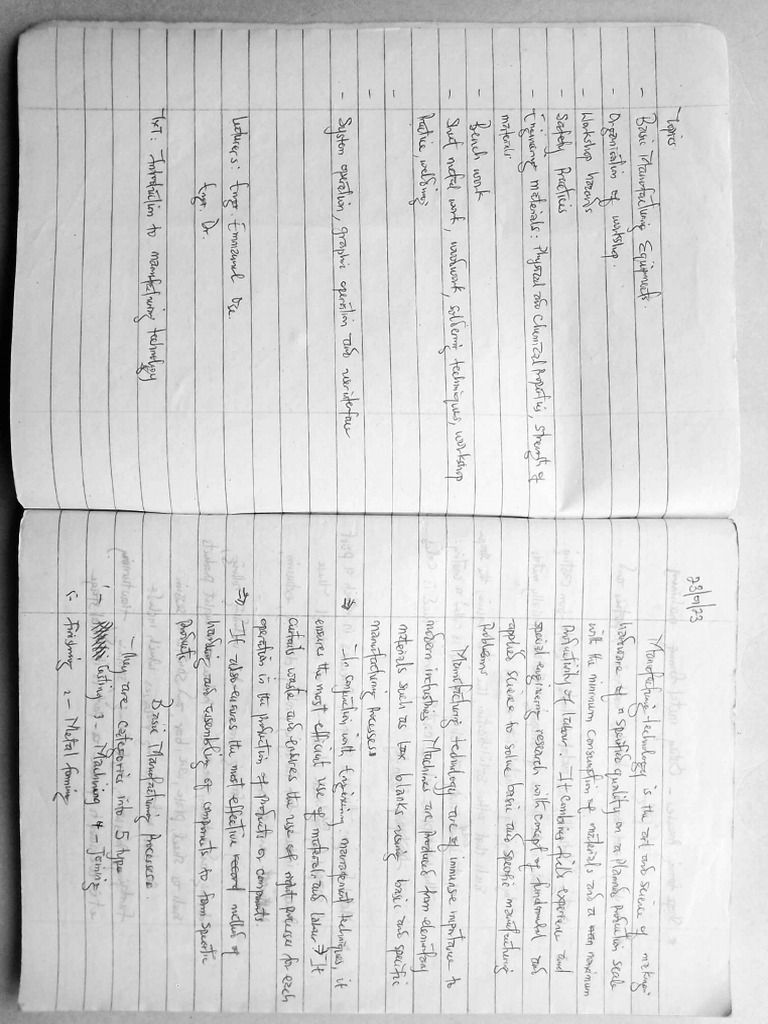 Topics
- Basic Manufacturing Equipments.
- Organization of workshop.
- Workshop hazards
- Safety Practices
- Engineering materials: Physical and Chemical Properties, strength of
materials
- Bench work
- Sheet metal work, woodwork, soldering techniques, workshop
Practice, welding
-
-
- System operation, graphic operation and userinterface
Lecturers: Engr. Emmanuel Ose
Engr. Dr.
Txt: Introduction to manufacturing technology
23/01/23
Manufacturing technology is the art and science of making
hardware of a specific quality on a planned production scale
with the minimum consumption of materials and a maximum
Productivity of labour. It combines field experience and
special engineering research with concept of fundamental and
applied science to solve basic and specific manufacturing
Problems
Manufacturing technology are of immense importance to
modern industries. Machines are produced from elementary
materials such as bar blanks using basic and specific
manufacturing Processess
⇒ - In conjunction with Engineering management techniques, it
ensures the most efficient use of material and labour → It
curtails waste and ensures the use of right process for each
operation in the production of products or components
⇒ - It also ensures the most effective method of
handling and assembling of components to form specific
Products.
Basic Manufacturing Processess.
- They are categories into 5 types
1 - Casting 3 - Machining 4 - Joining
5 - Finishing 2 - Metal forming